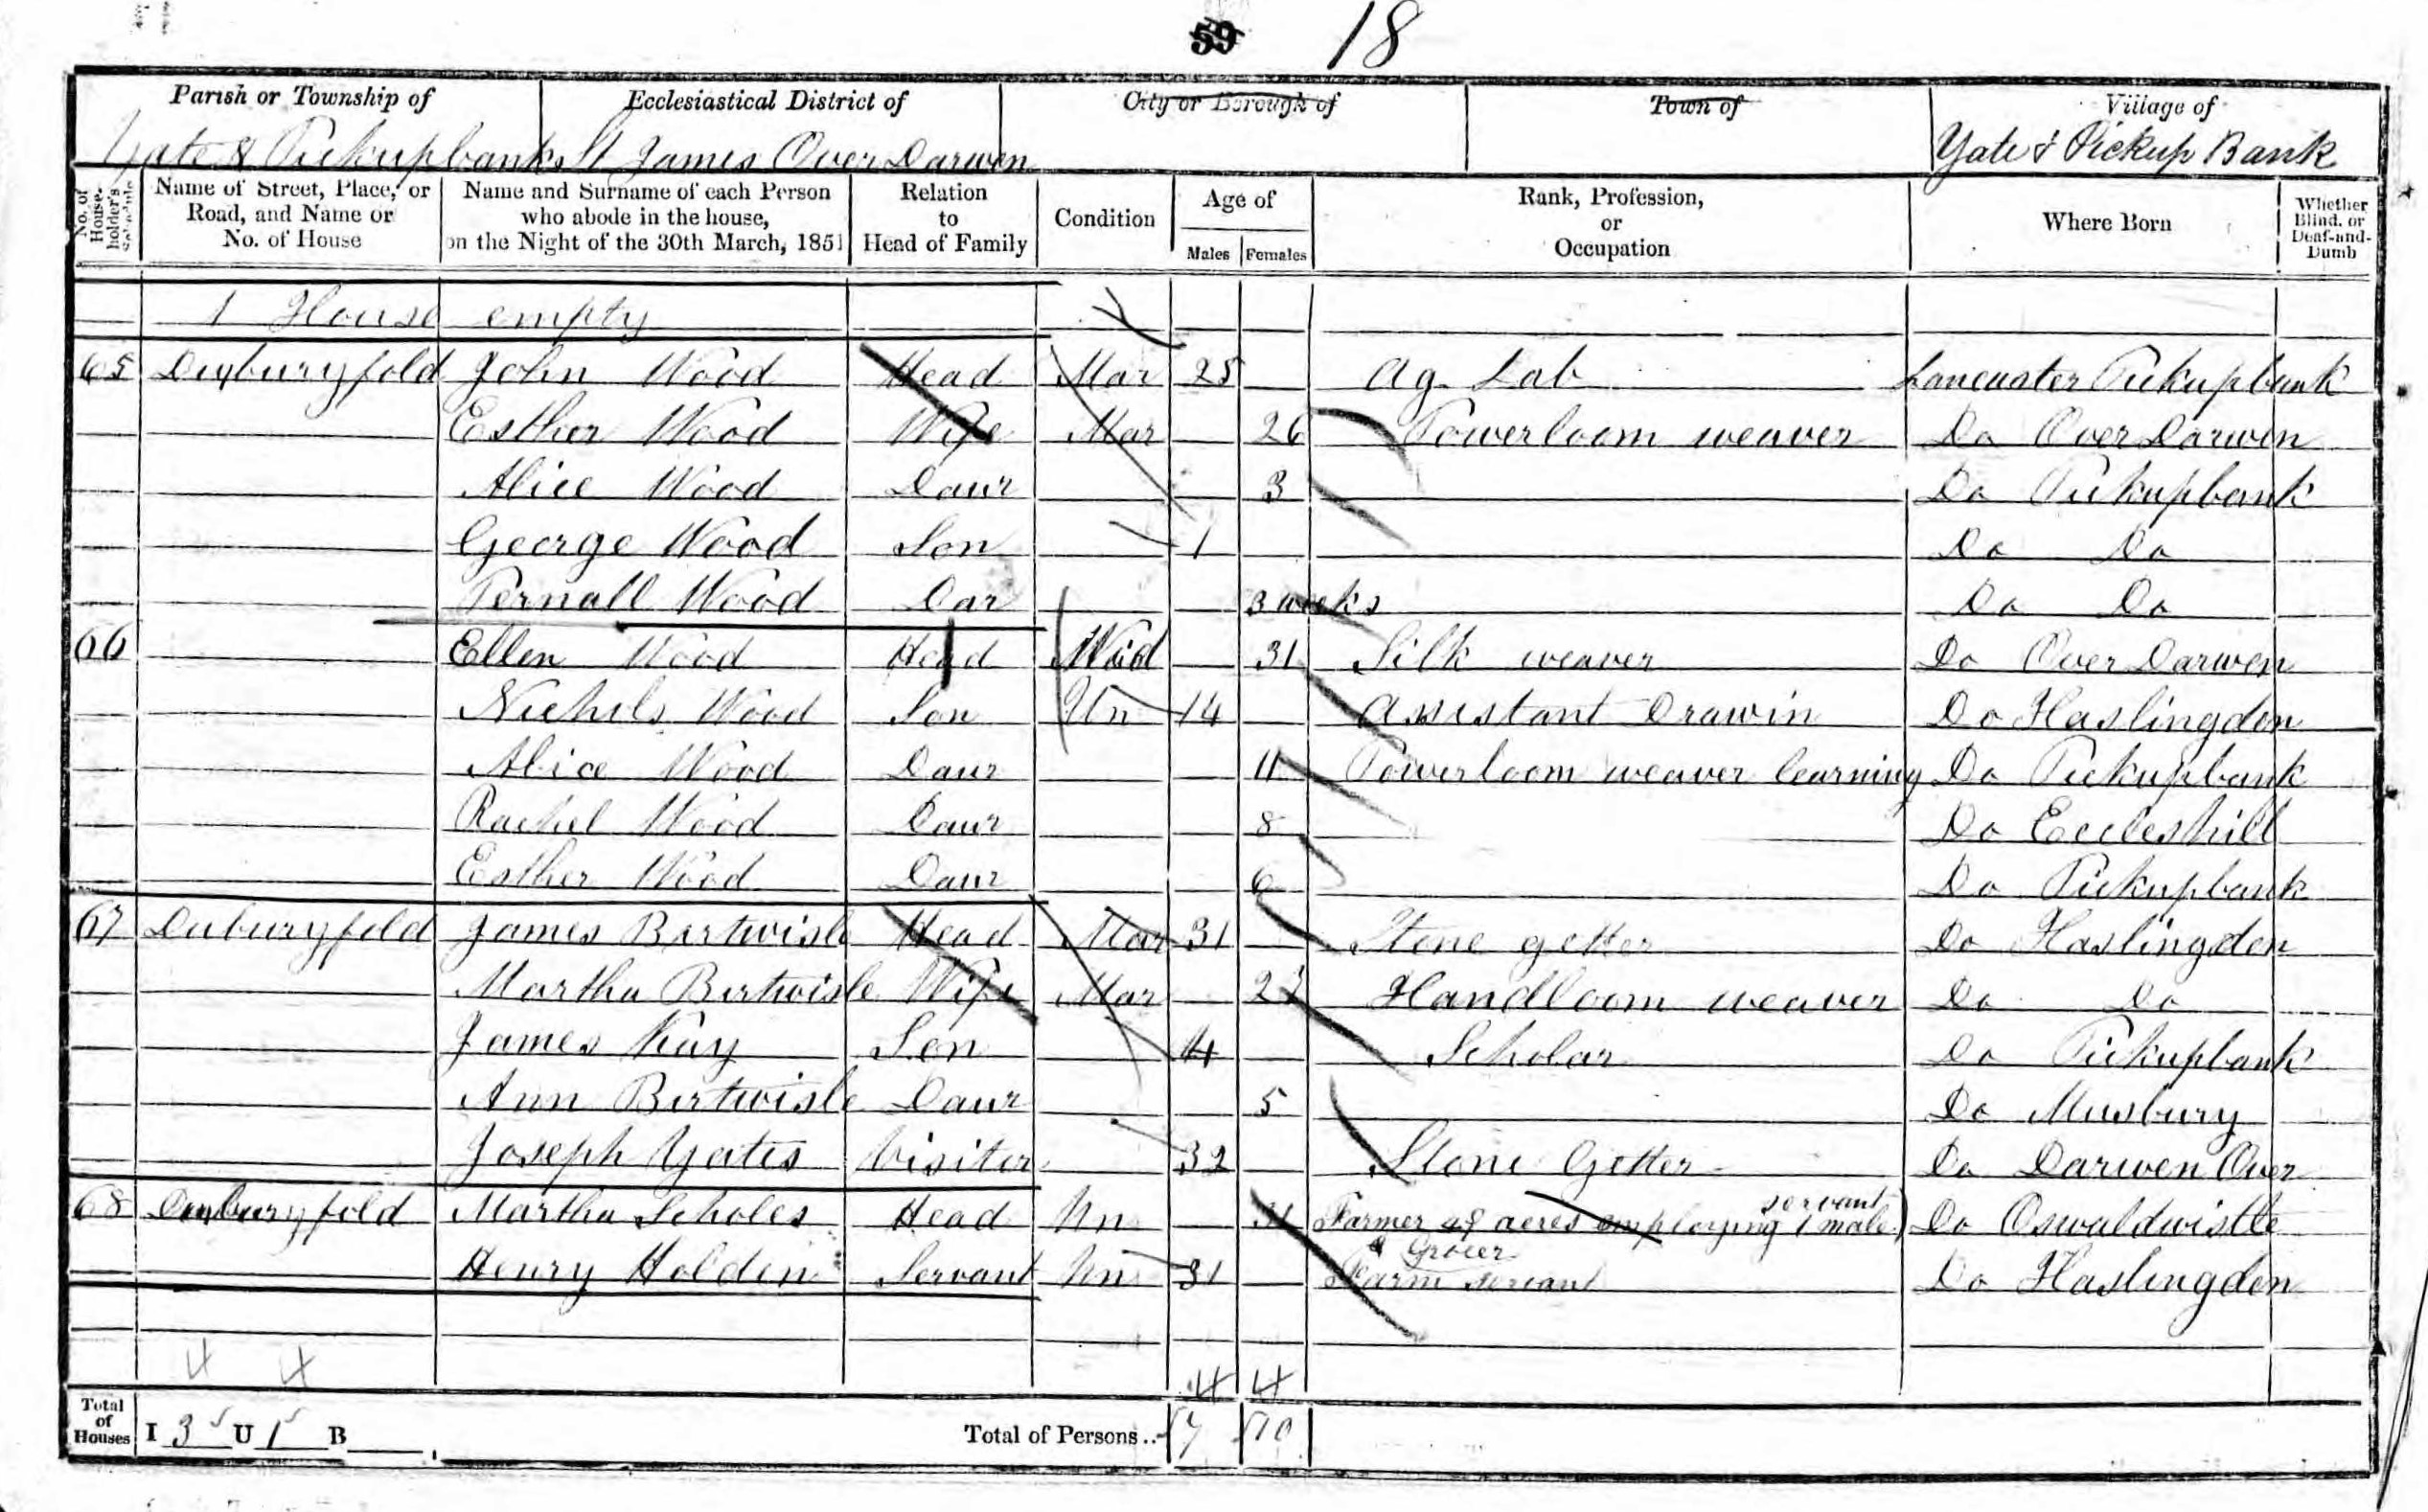 59 18
Parish or Township of Ecclesiastical District of City or Borough of Town of Village of
Yate & Pickupbank St James Over Darwen Yate & Pickup Bank
No. of House-holder's Schedule Name of Street, Place, or Road, and Name or No. of House Name and Surname of each Person who abode in the house, on the Night of the 30th March, 1851 Relation to Head of Family Condition Age of Males Females Rank, Profession, or Occupation Where Born Whether Blind, or Deaf-and-Dumb
1 House empty
65 Duxburyfold John Wood Head Mar 25 Ag. Lab Lancaster Pickupbank
Esther Wood Wife Mar 26 Powerloom weaver Do Over Darwin
Alice Wood Daur 3 Do Pickupbank
George Wood Son 1 Do Do
Pernall Wood Dar 3 weeks Do Do
66 Ellen Wood Head Wid 31 Silk weaver Do Over Darwen
Nichols Wood Son Un 14 Assistant Drawin Do Haslingden
Alice Wood Daur 11 Powerloom weaver learning Do Pickupbank
Rachel Wood Daur 8 Do Eccleshill
Esther Wood Daur 6 Do Pickupbank
67 Duburyfold James Bertwisle Head Mar 31 Stone getter Do Haslingden
Martha Bertwisle Wife Mar Handloom weaver Do Do
James Kay Son 4 Scholar Do Pickupbank
Ann Bertwisle Daur 5 Do Musbury
Joseph Yates Visiter 32 Stone Getter Do Darwen Over
servant
68 Duxburyfold Martha Scholes Head Un Farmer 49 acres employing 1 male) Do Oswaldwistle
& Grocer
Henry Holden Servant Un 31 Farm servant Do Haslingden
4 4 4 4
Total of Houses I 3 U 1 B Total of Persons.. 7 10